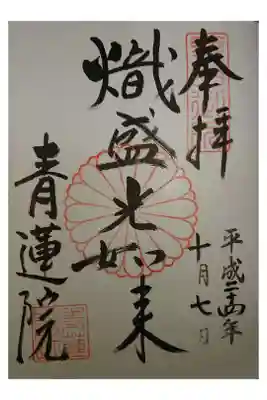 奉拝
平成二十四年
十月七日
熾盛光如来
青蓮院